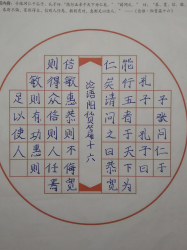 子张问仁
于孔子孔子曰
能行五者于天下为
仁矣请问之曰恭宽
论语阳货篇十六
信敏惠恭则不侮宽
则得众信则人任焉
敏则有功惠则
足以使人